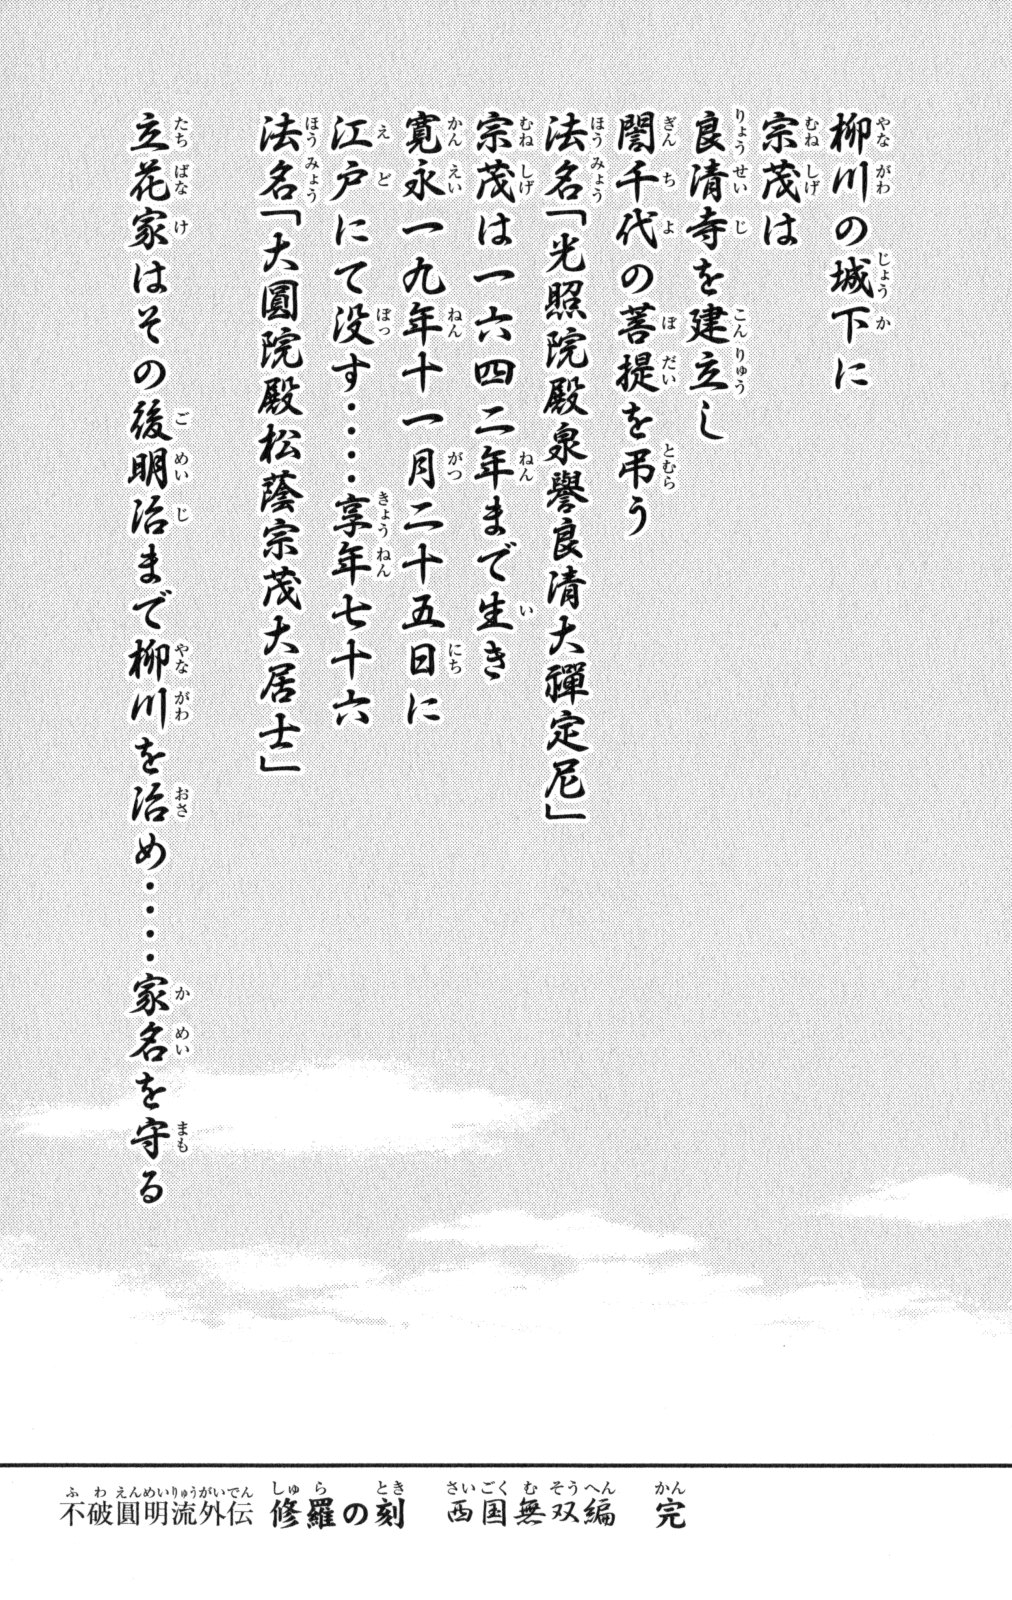 柳川の城下に
宗茂は
良清寺を建立し
誾千代の菩提を弔う
法名「光照院殿泉譽良清大禪定尼」
宗茂は一六四二年まで生き
寛永一九年十一月二十五日に
江戸にて没す・・・・享年七十六
法名「大圓院殿松蔭宗茂大居士」
立花家はその後明治まで柳川を治め・・・・家名を守る
不破圓明流外伝 修羅の刻 西国無双編 完